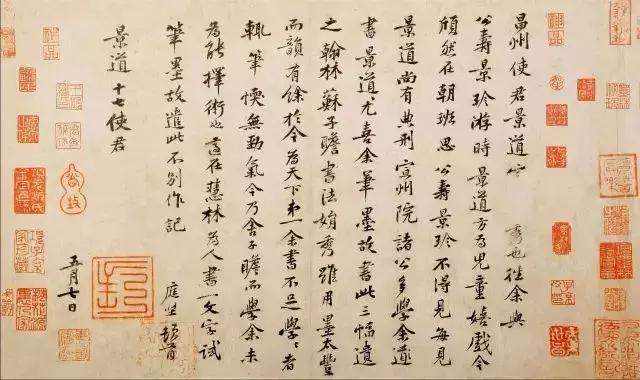 昌州使君景道宗秀也往余與
公壽景珍游時景道方為兒童嬉戲今
頎然在朝班思公壽景珍不得見每見
景道尚有典刑宣州院諸公多學余道
書景道尤喜余筆墨故書此三幅遺
之翰林蘇子瞻書法娟秀雖用墨太豐
而韻有餘於今為天下第一余書不足學〻者
輒筆愞無勁氣今乃舍子瞻而學余未
為能擇術也適在慧林為人書一文字試
筆墨故遣此不別作記 庭堅頓首
景道十七使君
五月七日